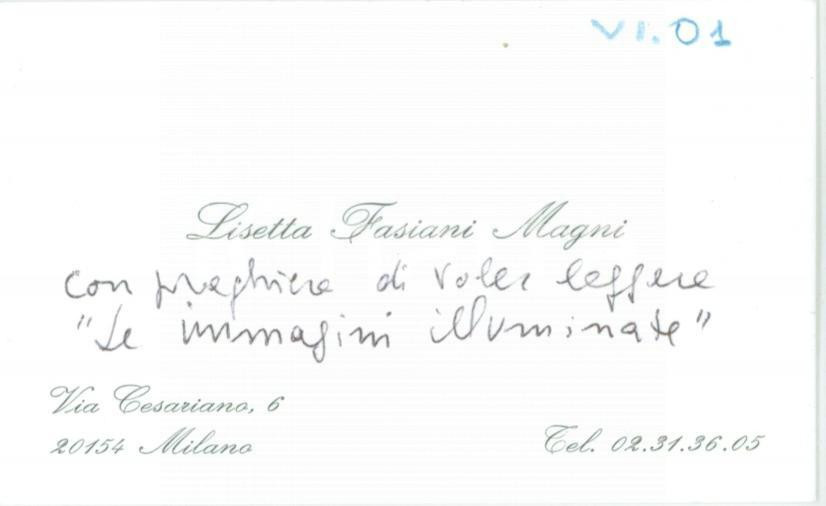 VI.01
Lisetta Fasiani Magni
con preghiera di voler leggere
"Le immagini illuminate"
Via Cesariano, 6
20154 Milano
Tel. 02.31.36.05